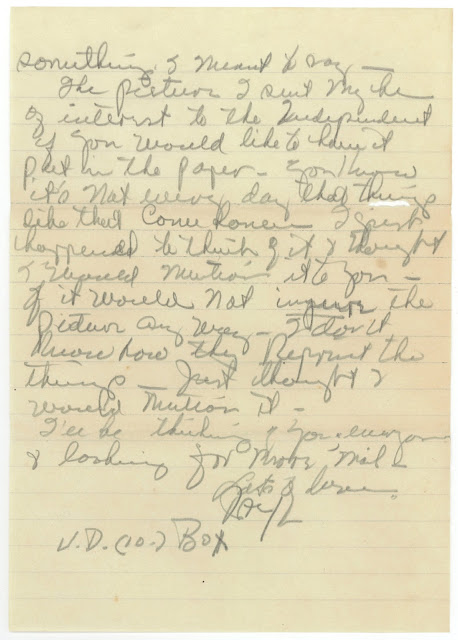 something I meant to say —
The picture I sent my be
of interest to the Independent
if you would like to have it
put in the paper — You know
it's not every day that things
like that Come
happened to think of it & thought
I would mention it to you —
if it would not injure the
picture any way — I don't
know how they Reprint the
things — Just thought I
would mention it —
I'll be thinking of you
& looking for more mail
Lots of
V.D. (10-) Box